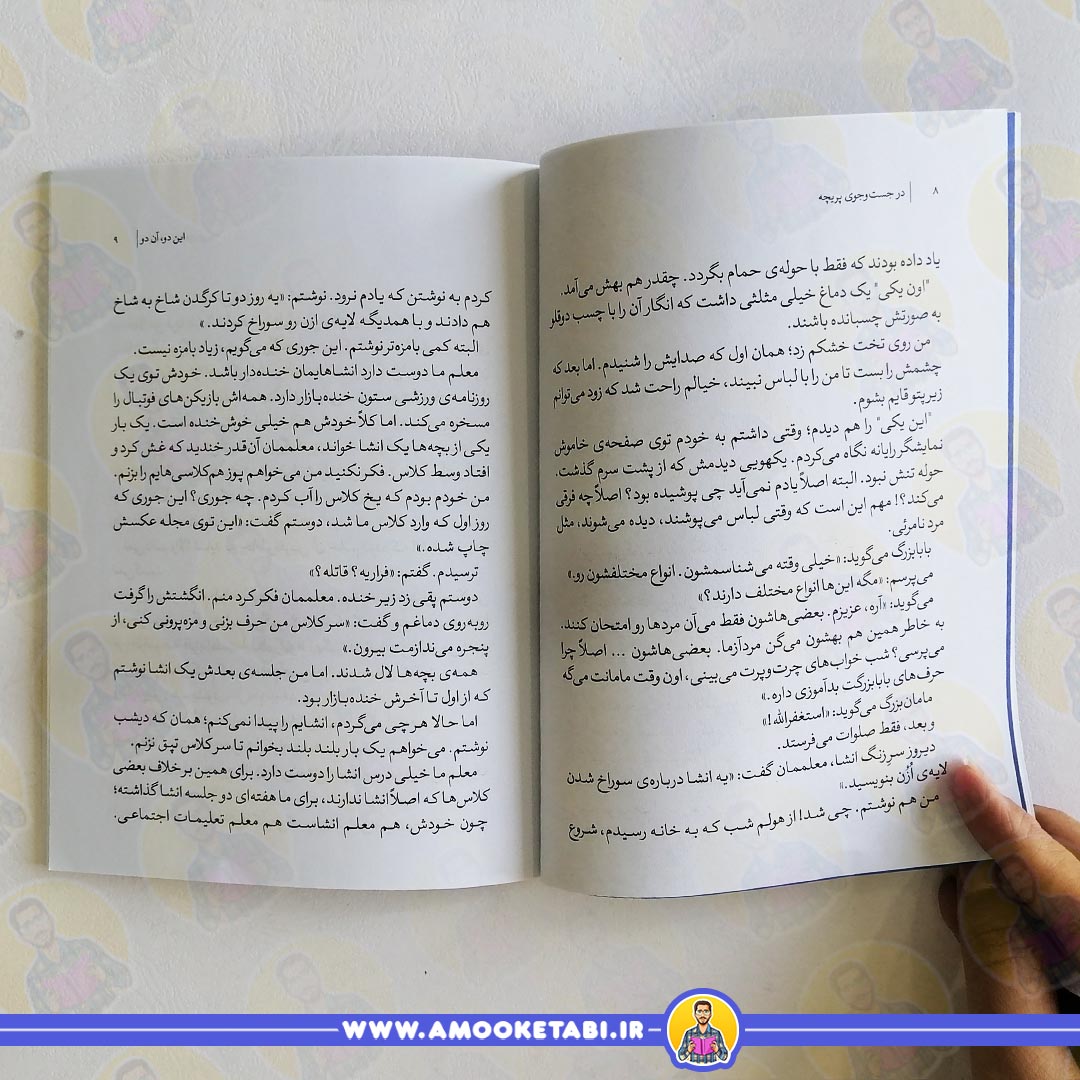 ۸ | در جست‌وجوی پریچه
یاد داده بودند که فقط با حوله‌ی حمام بگردد. چقدر هم بهش می‌آمد.
"اون یکی" یک دماغ خیلی مثلثی داشت که انگار آن را با چسب دوقلو
به صورتش چسبانده باشند.
من روی تخت خشکم زد؛ همان اول که صدایش را شنیدم. اما بعد که
چشمش را بست تا من را با لباس نبیند، خیالم راحت شد که زود می‌توانم
زیر پتو قایم بشوم.
"این یکی" را هم دیدم؛ وقتی داشتم به خودم توی صفحه‌ی خاموش
نمایشگر رایانه نگاه می‌کردم. یکهویی دیدمش که از پشت سرم گذشت.
حوله تنش نبود. البته اصلاً یادم نمی‌آید چی پوشیده بود؟ اصلاً چه فرقی
می‌کند؟! مهم این است که وقتی لباس می‌پوشند، دیده می‌شوند، مثل
مرد نامرئی.
بابابزرگ می‌گوید: «خیلی وقته می‌شناسمشون. انواع مختلفشون رو.»
می‌پرسم: «مگه این‌ها انواع مختلف دارند؟»
می‌گوید: «آره، عزیزم. بعضی‌هاشون فقط می‌آن مردها رو امتحان کنند.
به خاطر همین هم بهشون می‌گن مردآزما. بعضی‌هاشون ... اصلاً چرا
می‌پرسی؟ شب خواب‌های چرت‌وپرت می‌بینی، اون وقت مامانت می‌گه
حرف‌های بابابزرگت بدآموزی داره.»
مامان‌بزرگ می‌گوید: «استغفرالله!»
و بعد، فقط صلوات می‌فرستد.
دیروز سرِ زنگ انشا، معلممان گفت: «یه انشا درباره‌ی سوراخ شدن
لایه‌ی اُزُن بنویسید.»
من هم نوشتم. چی شد! از هولم شب که به خانه رسیدم، شروع
این دو، آن دو | ۹
کردم به نوشتن که یادم نرود. نوشتم: «یه روز دو تا کرگدن شاخ به شاخ
هم دادند و با همدیگه لایه‌ی ازن رو سوراخ کردند.»
البته کمی بامزه‌تر نوشتم. این جوری که می‌گویم، زیاد بامزه نیست.
معلم ما دوست دارد انشاهایمان خنده‌دار باشد. خودش توی یک
روزنامه‌ی ورزشی ستون خنده‌بازار دارد. همه‌اش بازیکن‌های فوتبال را
مسخره می‌کند. اما کلاً خودش هم خیلی خوش‌خنده است. یک بار
یکی از بچه‌ها یک انشا خواند، معلممان آن‌قدر خندید که غش کرد و
افتاد وسط کلاس. فکر نکنید من می‌خواهم پوز هم‌کلاسی‌هایم را بزنم.
من خودم بودم که یخ کلاس را آب کردم. چه جوری؟ این جوری که
روز اول که وارد کلاس ما شد، دوستم گفت: «این توی مجله عکسش
چاپ شده.»
ترسیدم. گفتم: «فراریه؟ قاتله؟»
دوستم پقی زد زیر خنده. معلممان فکر کرد منم. انگشتش را گرفت
روبه‌روی دماغم و گفت: «سر کلاس من حرف بزنی و مزه‌پرونی کنی، از
پنجره می‌ندازمت بیرون.»
همه‌ی بچه‌ها لال شدند. اما من جلسه‌ی بعدش یک انشا نوشتم
که از اول تا آخرش خنده‌بازار بود.
اما حالا هر چی می‌گردم، انشایم را پیدا نمی‌کنم؛ همان که دیشب
نوشتم. می‌خواهم یک بار بلند بلند بخوانم تا سر کلاس تپق نزنم.
معلم ما خیلی درس انشا را دوست دارد. برای همین برخلاف بعضی
کلاس‌ها که اصلاً انشا ندارند، برای ما هفته‌ای دو جلسه انشا گذاشته؛
چون خودش، هم معلم انشاست هم معلم تعلیمات اجتماعی.
WWW.AMOOKETABI.IR